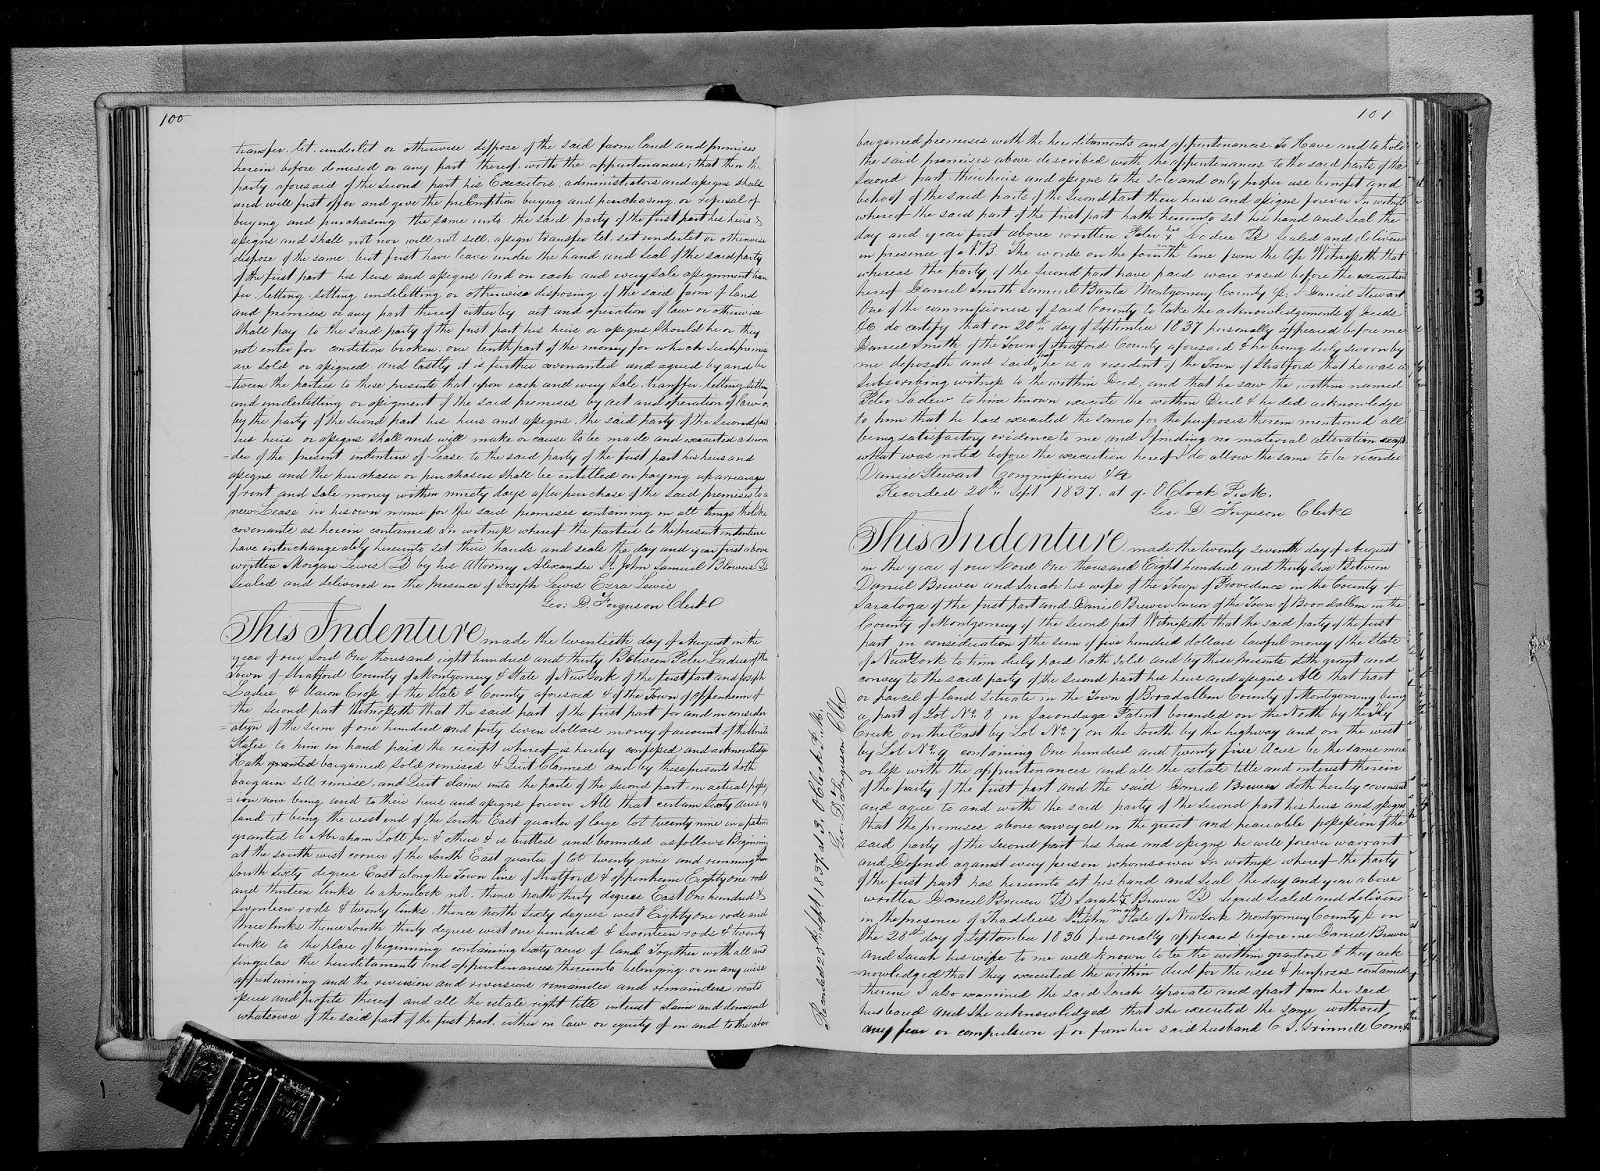 100
transfer let, underlet or otherwise dispose of the said farm land and premises
herein before demised or any part thereof, with the appurtenances, that then the
party aforesaid of the second part his Executors, administrators and assigns shall
and will first offer and give the preemption buying and purchasing or refusal of
buying and purchasing the same unto the said party of the first part his heirs &
assigns and shall not nor will not sell, assign transfer let, set underlet or otherwise
dispose of the same, but first have leave under the hand and seal of the said party
of the first part his heirs and assigns And on each and every sale assignment tran
fer, letting setting underletting or otherwise disposing of the said farm of land
and premises or any part thereof either by act and operation of law or otherwise
Shall pay to the said party of the first part his heirs or assigns should he or they
not enter for condition broken, one tenth part of the money for which such premises
are sold or assigned and lastly it is further covenanted and agreed by and be
=tween the parties to these presents that upon each and every sale, transfer, letting setting
and underletting or assignment of the said premises by act and operation of law or
by the party of the second part his heirs and assigns, the said party of the second part
his heirs or assigns shall and will make or cause to be made and executed a surren
=der of the present indenture of Lease to the said party of the first part his heirs and
assigns and the purchaser or purchasers shall be entitled on paying up arrearages
of rent and sale money within ninety days after purchase of the said premises to a
new Lease in his own name for the said premises containing in all things the like
covenants as herein contained In witness whereof the parties to the present indenture
have interchangeably hereunto set their hands and seals the day and year first above
written Morgan Lewis LS by his Attorney Alexander St. John Samuel Bowers LS
Sealed and delivered in the presence of Joseph Lewis Ezra Lewis
Geo: D. Ferguson Clerk
This Indenture made the twentieth day of August in the
year of our Lord One thousand eight hundred and thirty Between Peter Ladue of the
Town of Stratford County of Montgomery & State of New York of the first part and Joseph
Ladue & Aaron Cross of the State & County aforesaid & of the Town of Oppenheim of
the Second part Witnesseth that the said part of the first part for and in consider
=ation of the sum of one hundred and forty seven dollars money of account of the United
States to him in hand paid the receipt whereof is hereby confessed and acknowledge
Hath granted bargained sold remised & Quit Claimed and by these presents doth
bargain sell, remise, and Quit claim unto the parts of the second part in actual posses
=ion now being and to their heirs and assigns forever All that certain Sixty acres of
land it being the west end of the South East quarter of large lot twenty nine in a patent
granted to Abraham Lott Jr. & others & is butted and bounded as follows Beginning
at the south west corner of the South East quarter of lot twenty nine and running then
South Sixty degrees East along the Town line of Stratford & Oppenheim Eighty one rods
and thirteen links to a hemlock not. thence North thirty degrees East One hundred &
Seventeen rods & twenty links, thence North Sixty degrees west Eighty one rods and
three links thence South thirty degrees west one hundred & seventeen rods & twenty
links to the place of beginning containing sixty acres of land Together with all and
singular the hereditaments and appurtenances thereunto belonging or in any wise
appertaining and the reversion and reversions remainder and remainders rents
issues and profits thereof and all the estate right title interest claim and demand
whatsoever of the said part of the first part, either in law or equity of in and to the above
101
bargained premises with the hereditaments and appurtenances To Have and to hold
the said premises above described with the appurtenances to the said parts of the
Second part, their heirs and assigns to the sole and only proper use benefit and
behoof of the said parts of the Second part their heirs and assigns forever In witness
whereof the said part of the first part hath hereunto set his hand and seal the
day and year first above written Peter his X mark Ladue LS Sealed and delivered
in presence of N.B. The words on the fourth line from the top Witnesseth that
whereas the party of the second part have paid were rased before the execution
hereof Daniel Smith Samuel Banta Montgomery County Ss. I Daniel Stewart
One of the commissioners of said County to take the acknowledgements of Deeds
&C do certify that on 20th day of September 1837 personally appeared before me
Daniel Smith of the Town of Stratford County aforesaid & he being duly sworn by
me deposeth and said that he is a resident of the Town of Stratford that he was a
subscribing witness to the within Deed, and that he saw the within named
Peter Ladew to him known execute the within Deed & he did acknowledge
to him that he had executed the same for the purposes therein mentioned all
being satisfactory evidence to me and I finding no material alteration except
what was noted before the execution hereof I do allow the same to be recorded
Daniel Stewart Commissioner &c
Recorded 20th Sept 1837. at 9. O'Clock P.M.
Geo. D. Ferguson Clerk
This Indenture made the twenty seventh day of August
in the year of our Lord One thousand Eight hundred and thirty Six Between
Daniel Brewer and Sarah his wife of the Town of Providence in the County of
Saratoga of the first part and Daniel Brewer Junior of the Town of Broadalbin in the
County of Montgomery of the second part Witnesseth that the said party of the first
part in consideration of the sum of five hundred dollars lawful money of the State
of New York to him duly paid hath Sold and by these presents doth grant and
convey to the said party of the second part his heirs and assigns All that tract
or parcel of land Situate in the Town of Broadalbin County of Montgomery being
a part of Lot No. 8 in Sacondaga Patent bounded on the North by the Fly
Creek on the East by Lot No. 7 on the South by the highway and on the west
by Lot No. 9 containing One hundred and twenty five Acres be the same more
or less with the appurtenances and all the estate title and interest therein
of the party of the first part and the said Daniel Brewer doth hereby covenant
and agree to and with the said party of the second part his heirs and assigns
that the premises above conveyed in the quiet and peaceable possession of the
said party of the Second part his heirs and assigns he will forever warrant
and Defend against every person whomsoever In witness whereof the party
of the first part has hereunto set his hand and Seal the day and year above
written Daniel Brewer LS Sarah her X mark Brewer LS Signed Sealed and delivered
in the presence of Thaddeus St. John State of New York Montgomery County ss on
the 28th day of September 1836 personally appeared before me Daniel Brewer
and Sarah his wife to me well known to be the within grantors & they ack
=nowledged that they executed the within deed for the uses & purposes contained
therein I also examined the said Sarah separate and apart from her said
husband and she acknowledged that she executed the same without
any fear or compulsion of or from her said husband C. S. Grinnell Comr
Recorded 25th Sept 1837. at 2. O'Clock P.M.
Geo. D. Ferguson Clk
13